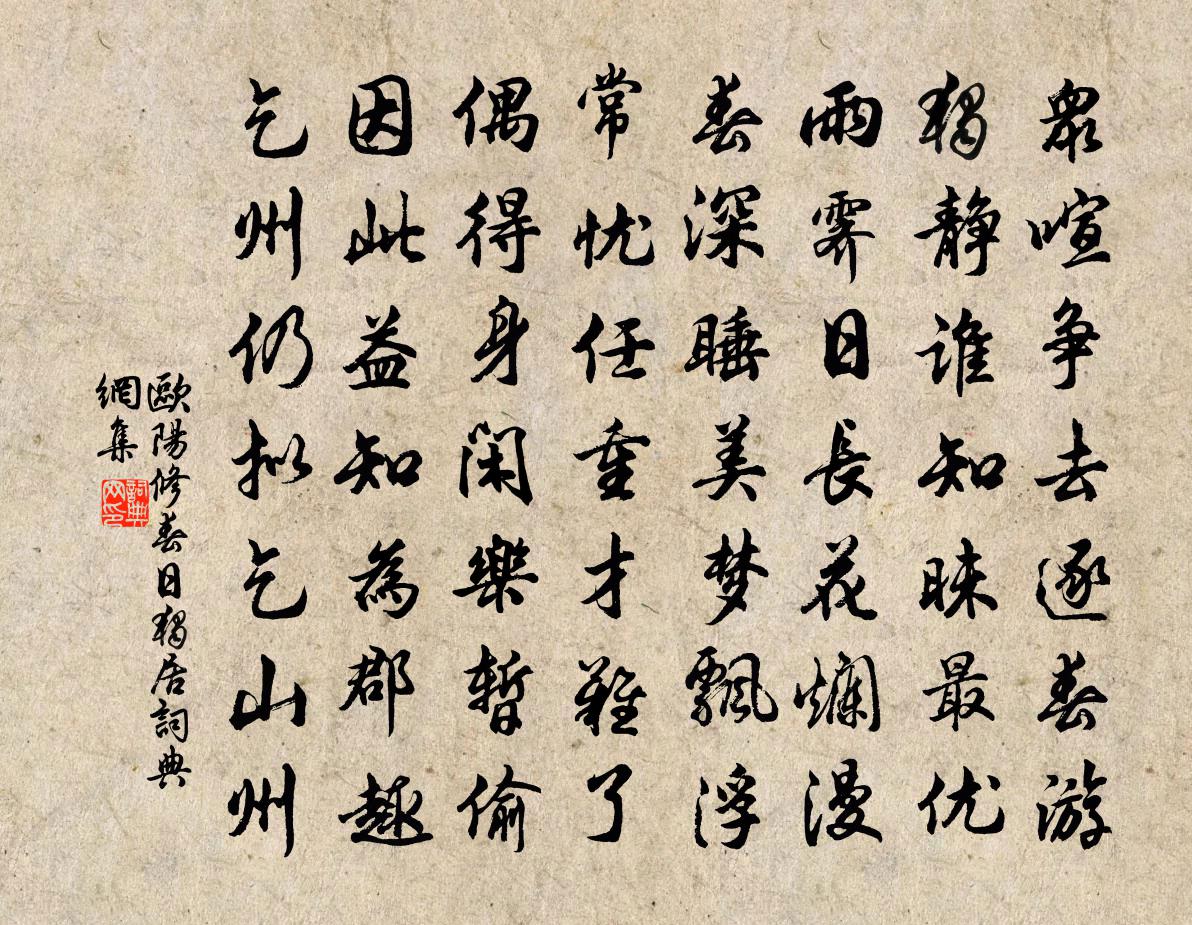 衆喧争去逐春游
獨静谁知味最优
雨霁日長花爛漫
春深睡美梦飄浮
常忧任重才難了
偶得身閑樂暫偷
因此益知為郡趣
乞州仍拟乞山州
歐陽修春日獨居詞典
網集
詞典
网印